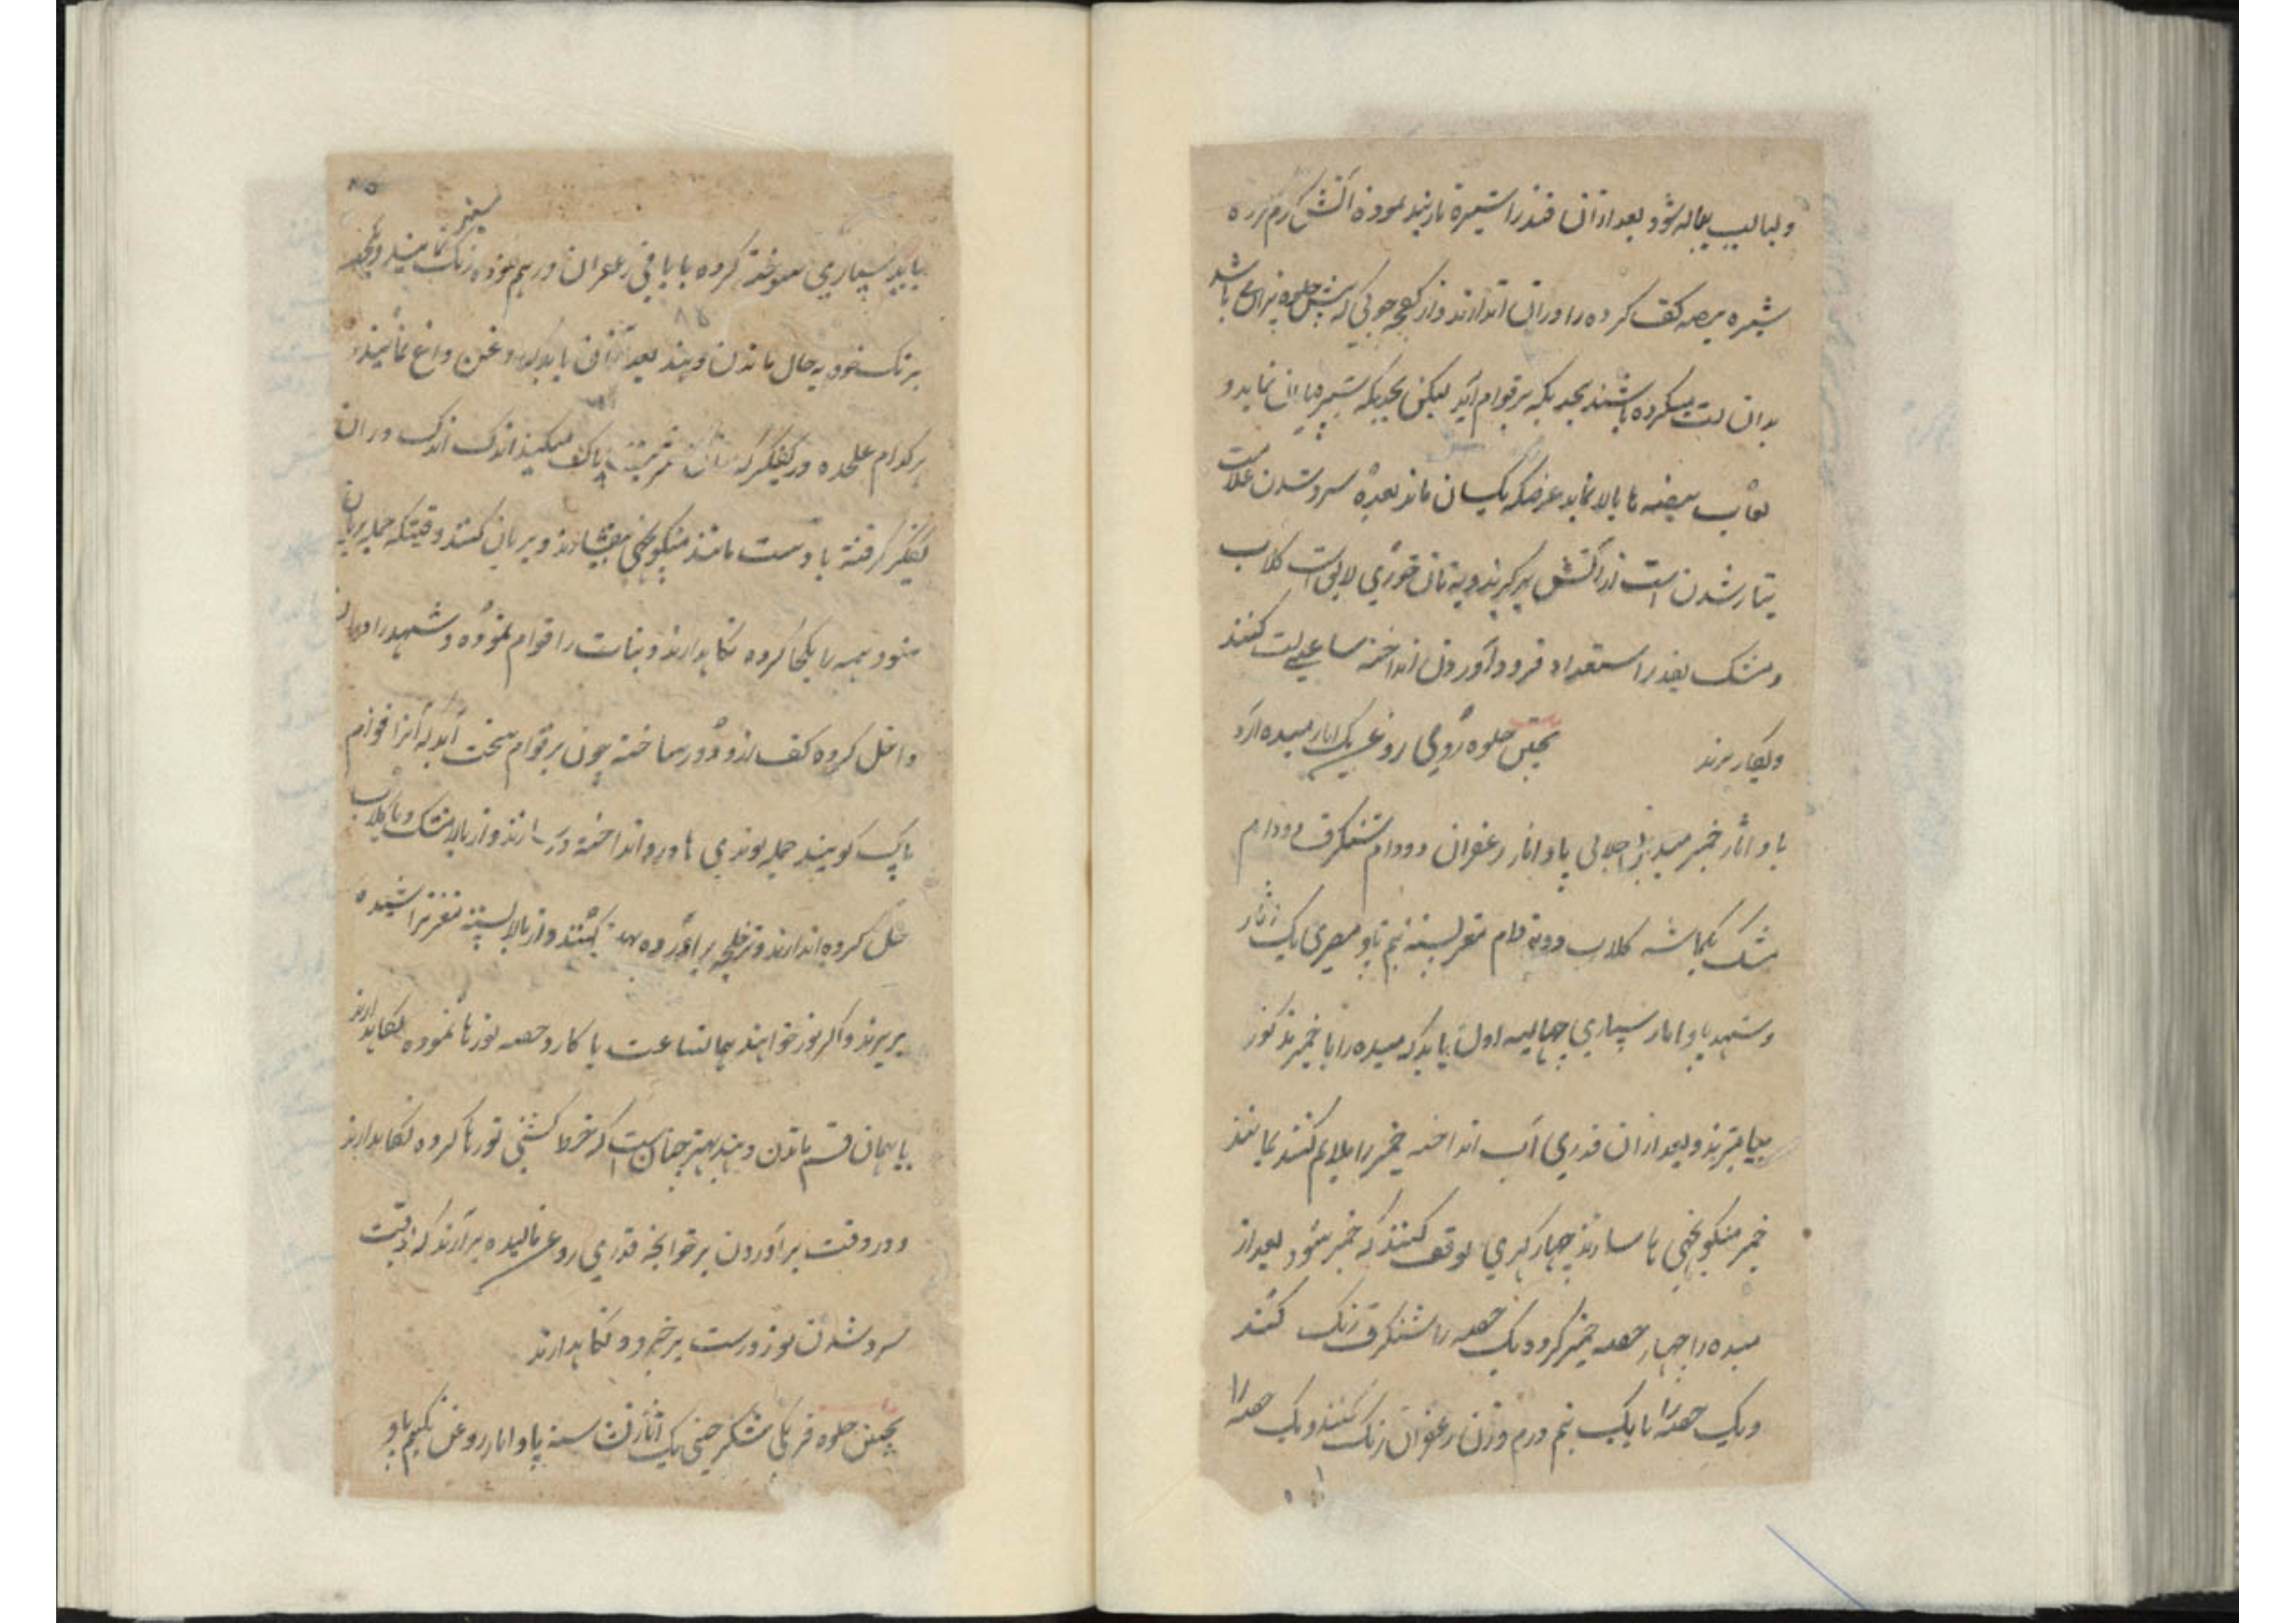 و لبالب پیاله شود بعد ازان قند را شیره تار بند نموده آتش گرم کرده
شیره بیضه کف کرده را دران اندازند و از کفچه چوبی که پیش حلوه پزان می باشد
بدان لت میکرده باشند بحدیکه بر قوام آید لیکن بحدیکه شیره نماید و
لعاب بیضه ها بالا نماید غرضکه یکسان ماند بعده سرد شدن علامت
تیار شدن است از آتش برگیرند و به نان خوری لایق است گلاب
و مشک بقدر استعداد فرود آوردن انداخته ساعتی لت کنند
و بکار برند پختن حلوه رومی روغن یک اثار میده آرد
پاو اثار خمیر پاو اثار زعفران دو دام شنگرف دو دام
مشک یکماشه گلاب دو نه دام مغز پسته نیم پاو مصری یک اثار
و شهد پاو اثار سپاری چهالیه اول باید که میده را با خمیر مذکور
بیامیزند و بعد ازان قدری آب انداخته خمیر را ملایم کنند بمانند
خمیر منکوچهی ها سازند چهار گهری توقف کنند که خمیر شود بعد از
میده را چهار حصه خمیر کرده یک حصه را شنگرف رنگ کنند
و یک حصه را با یک نیم درم وزن زعفران رنگ کنند و یک حصه را
باید سپاری سوخته کرده با باقی زعفران در هم نموده رنگ سبز نمایند و یکحصه
برنگ خود به حال ماندن دهند بعد ازان باید که روغن داغ نمایند
هر کدام علیحده در کفگیر که پاک میکنند اندک اندک دران
کفگیر گرفته با دست مانند منکوچهی بیفشارند و بریان کنند وقتیکه جمله بریان
شود همه را یکجا کرده نگاهدارند و نبات را قوام نموده و شهد را دران
داخل کرده کف ازو دور ساخته چون بر قوام سخت آید که آنرا قوام
پاک گویند جمله بوندی ها درو انداخته و از بالا مشک و با گلاب
حل کرده اندازند و بر آورده پهن کنند و از بالا پسته مغز تراشیده
بریزند و اگر لوز خواهند همان ساعت با کارد حصه لوزها نموده نگاهدارند
یا بهمان قسم ماندن دهند بهتر چنان است که خط کشتنی لوزها کرده نگاهدارند
و در وقت برآوردن بر خوانچه قدری روغن مالیده برآرند که در وقت
سرد شدن لوز درست بر خیزد و نگاهدارند
پختن حلوه فرنگی شکر چینی یک اثار نشاسته پاو اثار روغن یکنیم پاو